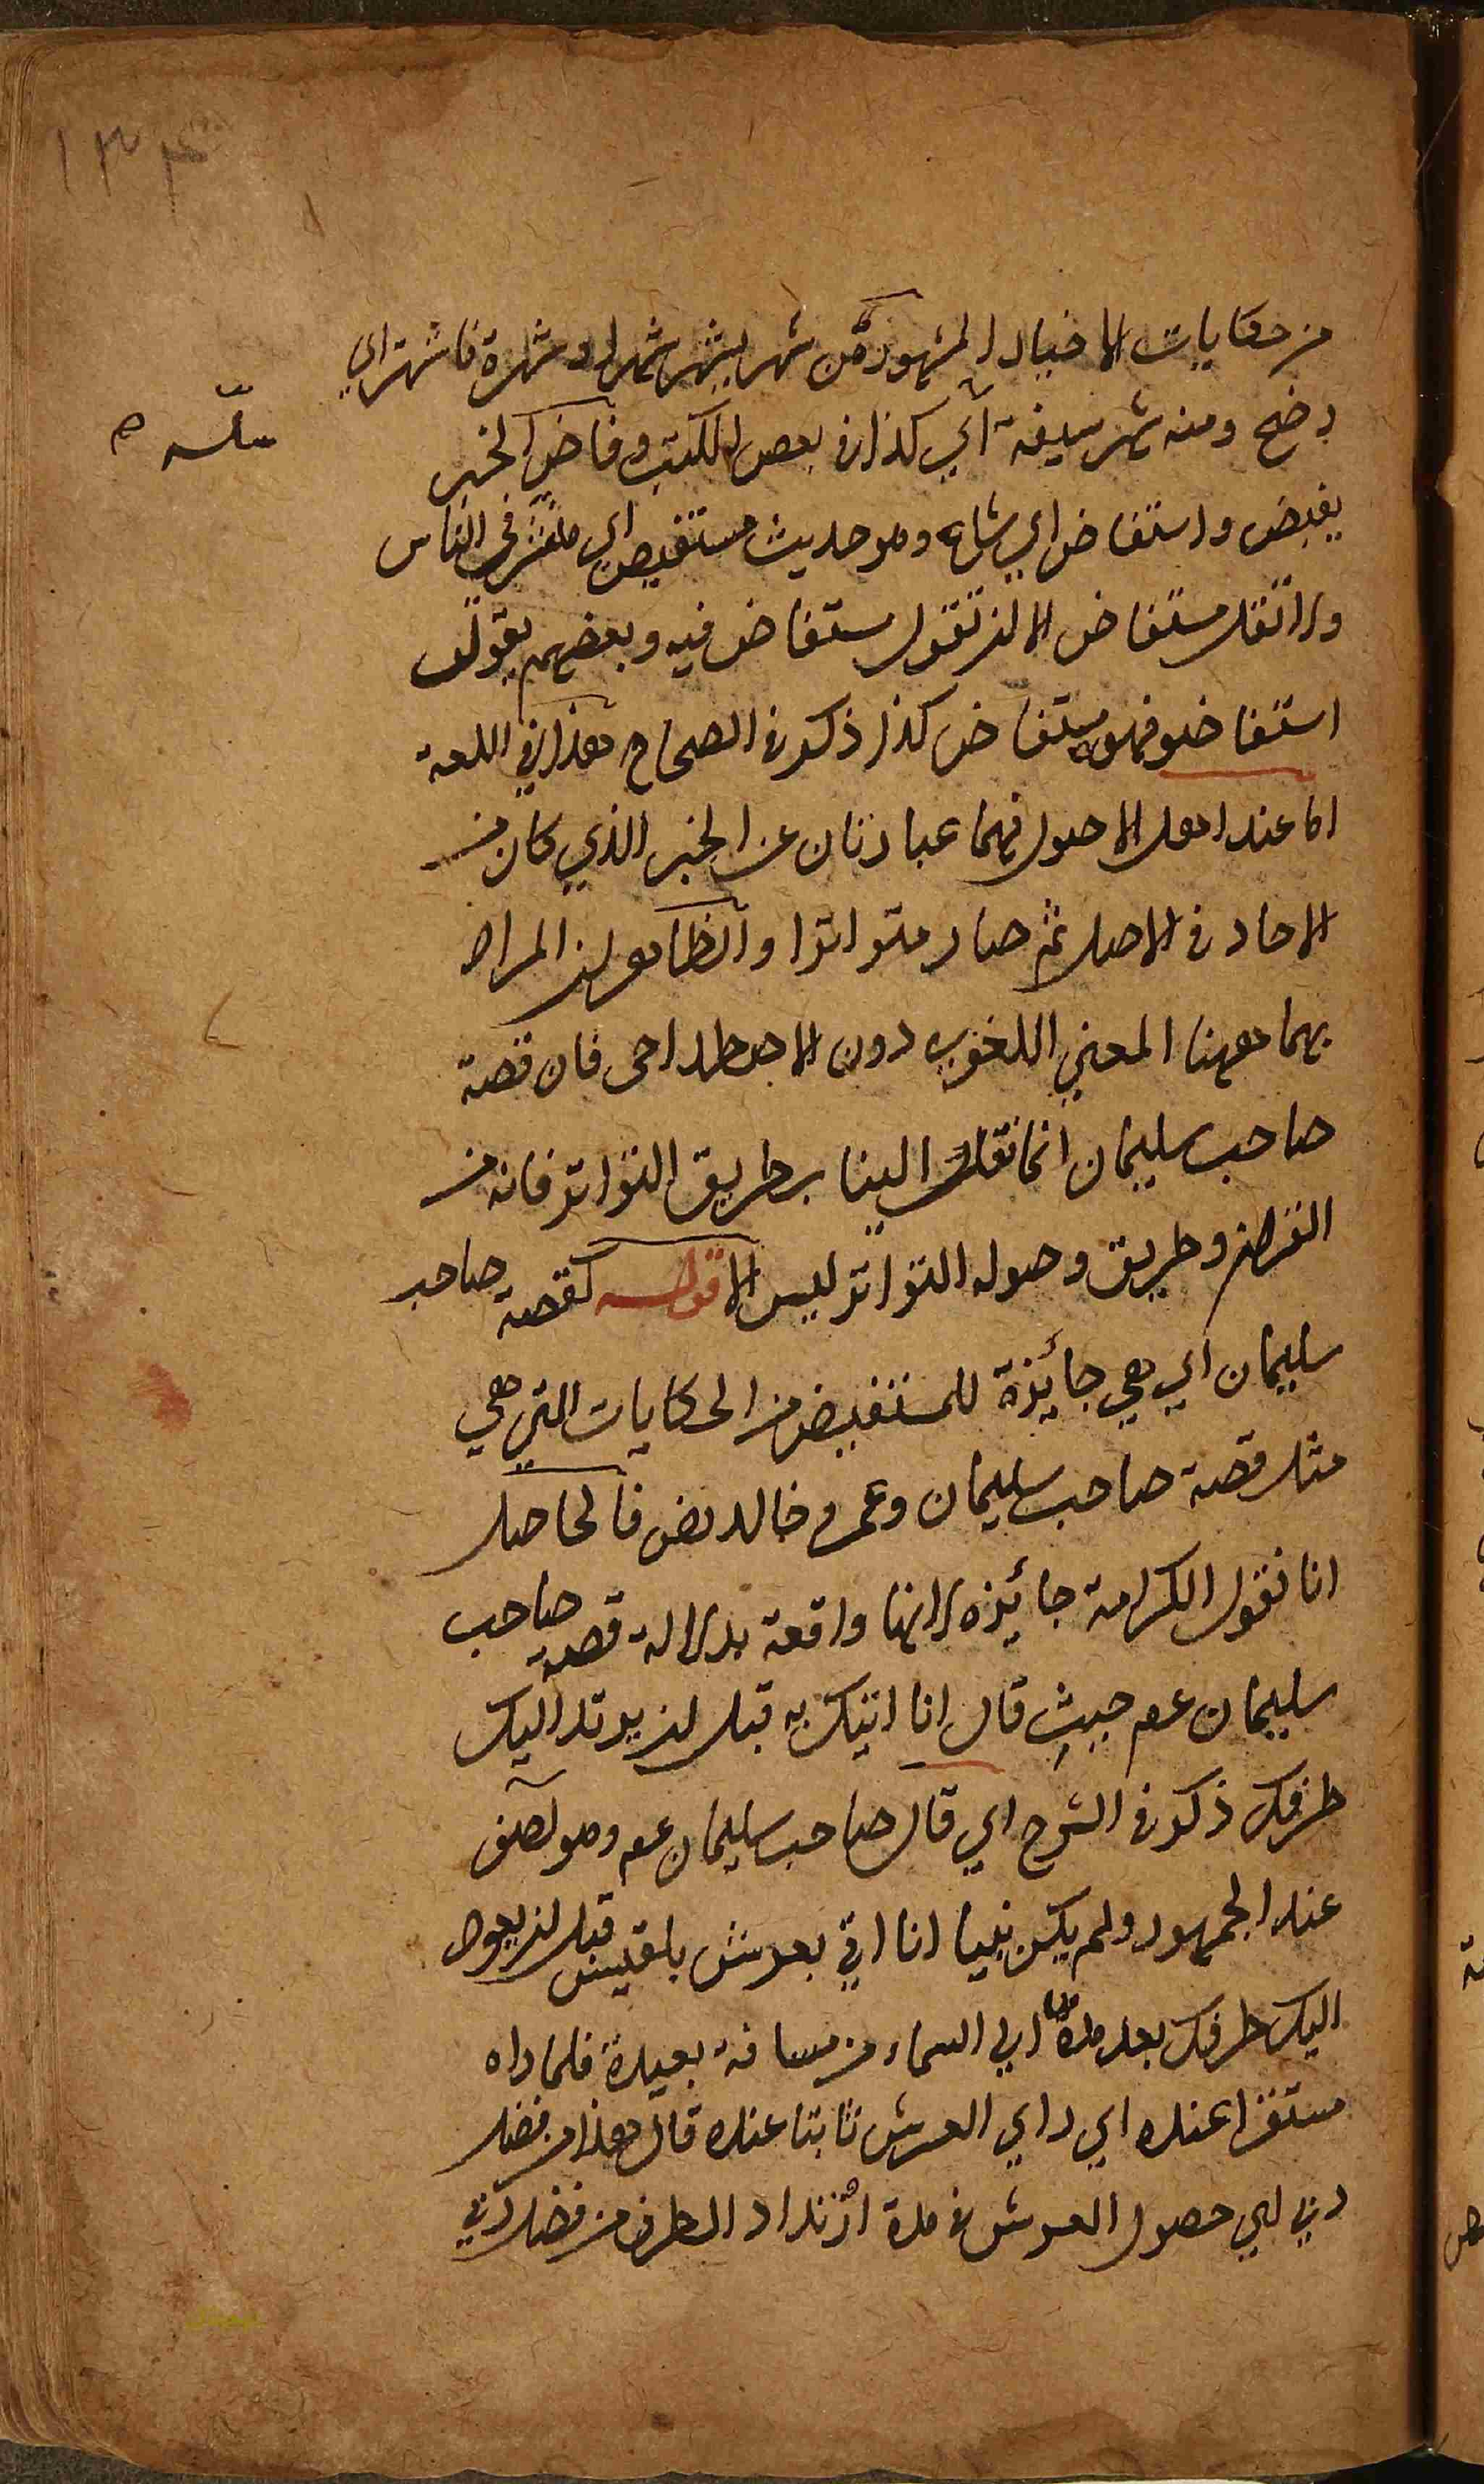 ١٣٤
من حكايات الاخيار المشهورة من شهر يشهر شهرا و شهرة فاشتهر اي
وضح ومنه شهر سيفه اي سلّه كذا في بعض الكتب وفاض الخبر
يفيض واستفاض اي شاع وهو حديث مستفيض اي منتشر في الناس
ولا تقل مستفاض الا ان تقول مستفاض فيه وبعضهم يقول
استفاضوه فهو مستفاض كذا ذكر في الصحاح هذا في اللغة
اما عند اهل الاصول فهما عبارتان عن الخبر الذي كان من
الاحاد في الاصل ثم صار متواترا والظاهر ان المراد
بهما ههنا المعني اللغوي دون الاصطلاحي فان قصة
صاحب سليمان انما نقلت الينا بطريق التواتر فانه من
القران وطريق وصوله التواتر ليس الا قوله كقصة صاحب
سليمان اي هي جائزة للمستفيض من الحكايات التي هي
مثل قصة صاحب سليمان وعمر و خالد رض فالحاصل
انا نقول الكرامة جائزة لانها واقعة بدلالة قصة صاحب
سليمان عم حيث قال انا اتيك به قبل ان يرتد اليك
طرفك ذكر في الشرح اي قال صاحب سليمان عم وهو اصف
عند الجمهور ولم يكن نبيا انا اتي بعرش بلقيس قبل ان يعود
اليك طرفك بعد مدها الي السماء من مسافة بعيدة فلما راه
مستقرا عنده اي راي العرش ثابتا عنده قال هذا من فضل
ربي اي حصول العرش في مدة ارتداد الطرف من فضل ربي